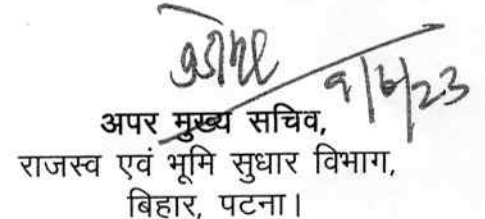 9/6/23
अपर मुख्य सचिव,
राजस्व एवं भूमि सुधार विभाग,
बिहार, पटना।